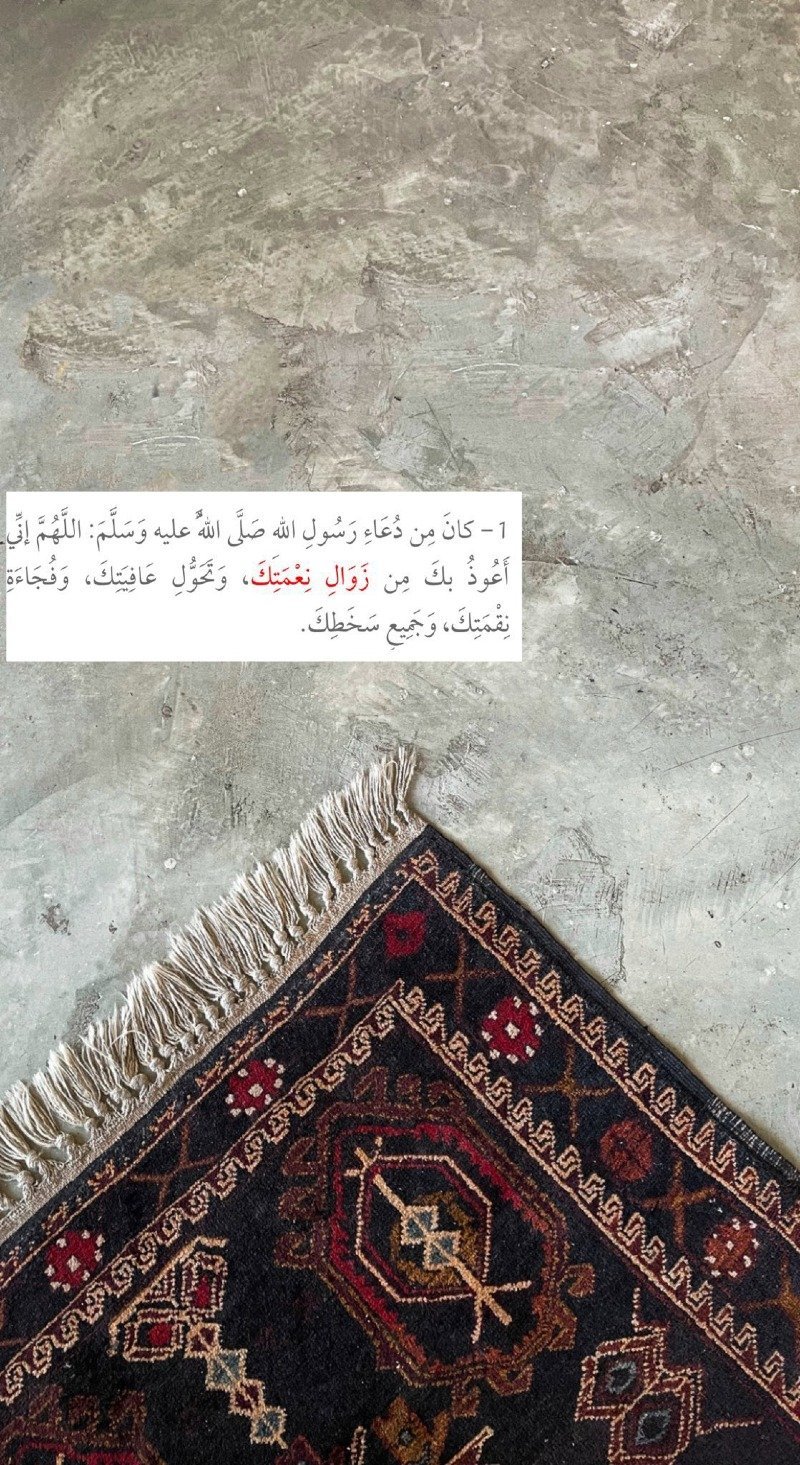 1- كانَ مِن دُعَاءِ رَسُولِ الله صَلَّى اللهُ عليه وَسَلَّمَ: اللَّهُمَّ إنِّي
أَعُوذُ بكَ مِن زَوَالِ نِعْمَتِكَ، وَتَحَوُّلِ عَافِيَتِكَ، وَفُجَاءَةِ
نِقْمَتِكَ، وَجَمِيعِ سَخَطِكَ.